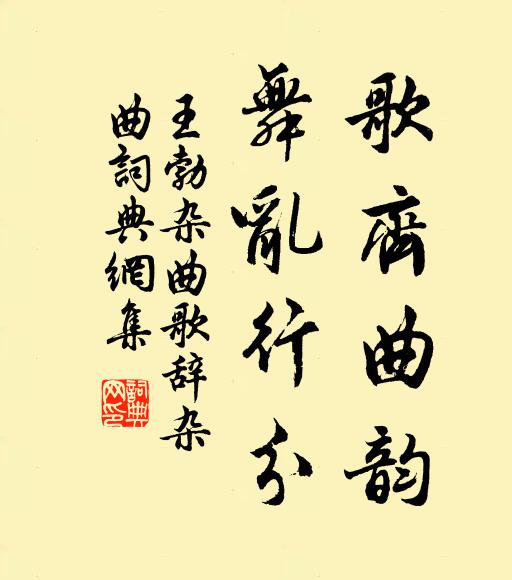 歌齊曲韵
舞亂行分
王勃杂曲歌辞杂
曲詞典網集
詞典網印